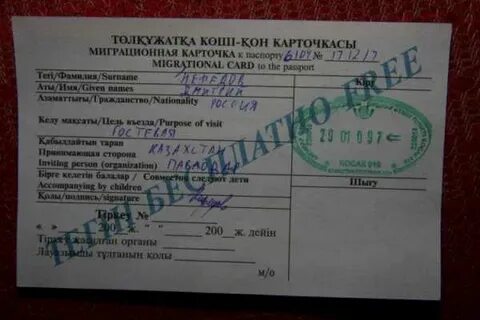 ТӨЛҚҰЖАТҚА КӨШІ-ҚОН КАРТОЧКАСЫ
МИГРАЦИОННАЯ КАРТОЧКА к паспорту 6104 № 171217
MIGRATIONAL CARD to the passport
Тегі/Фамилия/Surname
Аты/Имя/Given names ДМИТРИЙ
Азаматтығы/Гражданство/Nationality РОССИЯ
Келу мақсаты/Цель въезда/Purpose of visit
ГОСТЕВАЯ
Қабылдайтын тарап
Принимающая сторона КАЗАХСТАН
Inviting person (organization) ПАВЛОДАР
Бірге келетін балалар / Совместно следуют дети
Accompanying by children
Қолы/подпись/signature
Тіркеу №
200 ж. 200 ж. дейін
Тіркеу жазылған органы
Лауазымды тұлғаның қолы
м/о
Кіру
29 01 097
KOGAK 019
Шығу
ТЕГІН БЕСПЛАТНО FREE